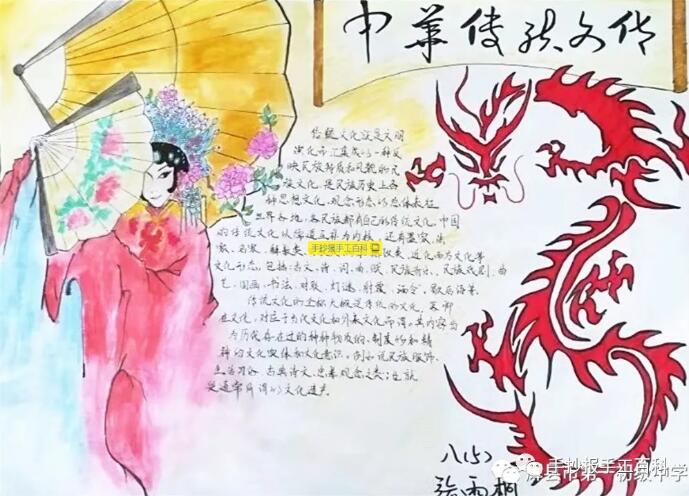 中华传统文化
传统文化就是文明
演化而汇集成的一种反
映民族特质和风貌的民
族文化,是民族历史上各
种思想文化、观念形态的总体表征
世界各地,各民族都有自己的传统文化.中国
的传统文化以儒道互补为内核,还有墨家、法
家、名家、释教类、
文化形态,包括:古文、诗、词、曲、赋、民族音乐、民族戏剧、曲
艺、国画、书法、对联、灯谜、射覆、酒令、歇后语等.
传统文化的全称大概是传统的文化,
文化,对应于当代文化和外来文化而谓.其内容当
为历代存在过的种种物质的、制度的和精
神的文化实体和文化意识.例如说民族服饰、
生活习俗、古典诗文、忠孝观念之类;也就
是通常所谓的文化遗产
手抄报手工百科
八(5)
张雨桐
手抄报手工百科